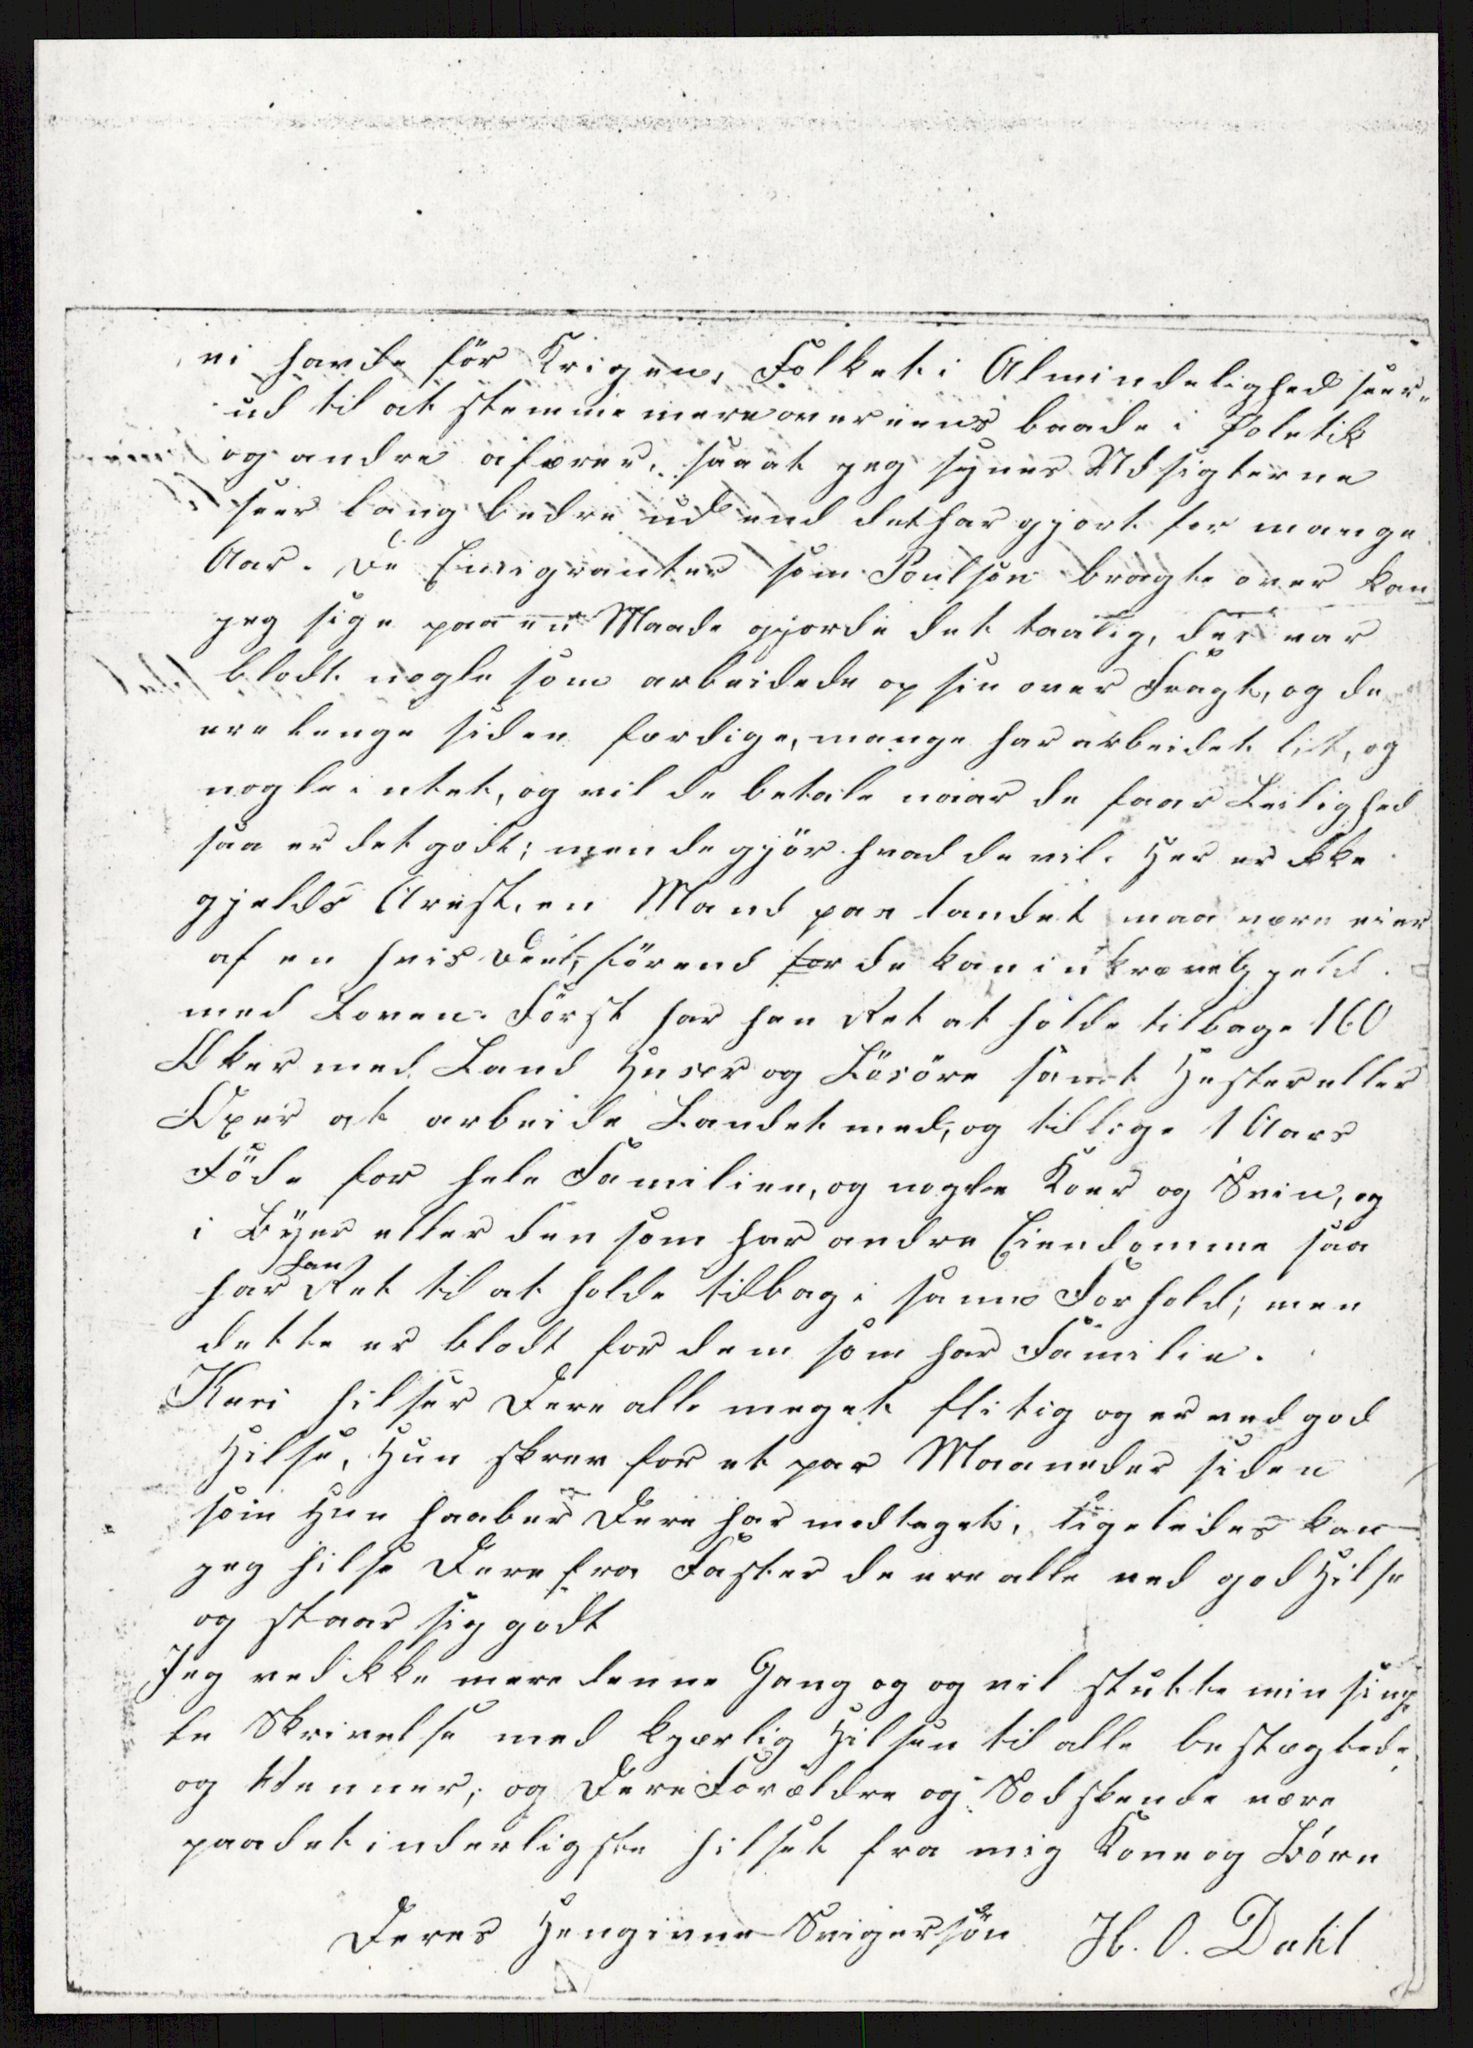 vi havde før Krigen, Folket i Almindelighed seer
ud til at stemme mere overeens baade i Poletik
og andre afærer, saa at jeg synes Udsigterne
seer lang bedre ud end det har gjort for mange
Aar. De Emigranter som Poulson bragte over kan
jeg sige paa en Maade gjorde det taalig, der var
blodt nogle som arbeidede op sin over Fragt, og de
ere lenge siden færdige, mange har arbeidet lit, og
nogle intet, og vil de betale naar de faar Leilighed
saa er det godt; men de gjør hvad de vil. Her er ikke
gjelds Arest, en Mand paa landet maa være eier
af en hvis Deel, førend for de kan inkræve Gjeld
med Loven. Først har han Ret at holde tilbage 160
Aker med Land Huser og Løsøre samt Hester eller
Oxer at arbeide Landet med, og tillige 1 Aars
Føde for hele Familien, og nogle Koer og Svin, og
i Byer eller den som har andre Eiendomme saa
har han Ret til at holde tilbag i samme Forhold; men
dette er blodt for dem som har Familie.
Kari hilser Dere alle meget flitig og er ved god
Hilse, Hun skrev for et par Maaneder siden
som Hun haaber Dere har modtaget, ligeledes kan
jeg hilse Dere fra Faster de ere alle ved god Hilse
og staar sig godt
Jeg ved ikke mere denne Gang og og vil slutte min simp
le Skrivelse med kjærlig Hilsen til alle beslægtede
og Venner, og Dere Forældre og Sødskende være
paa det inderligste hilset fra mig Kone og Børn
Deres Hengivne Svigersøn H. O. Dahl